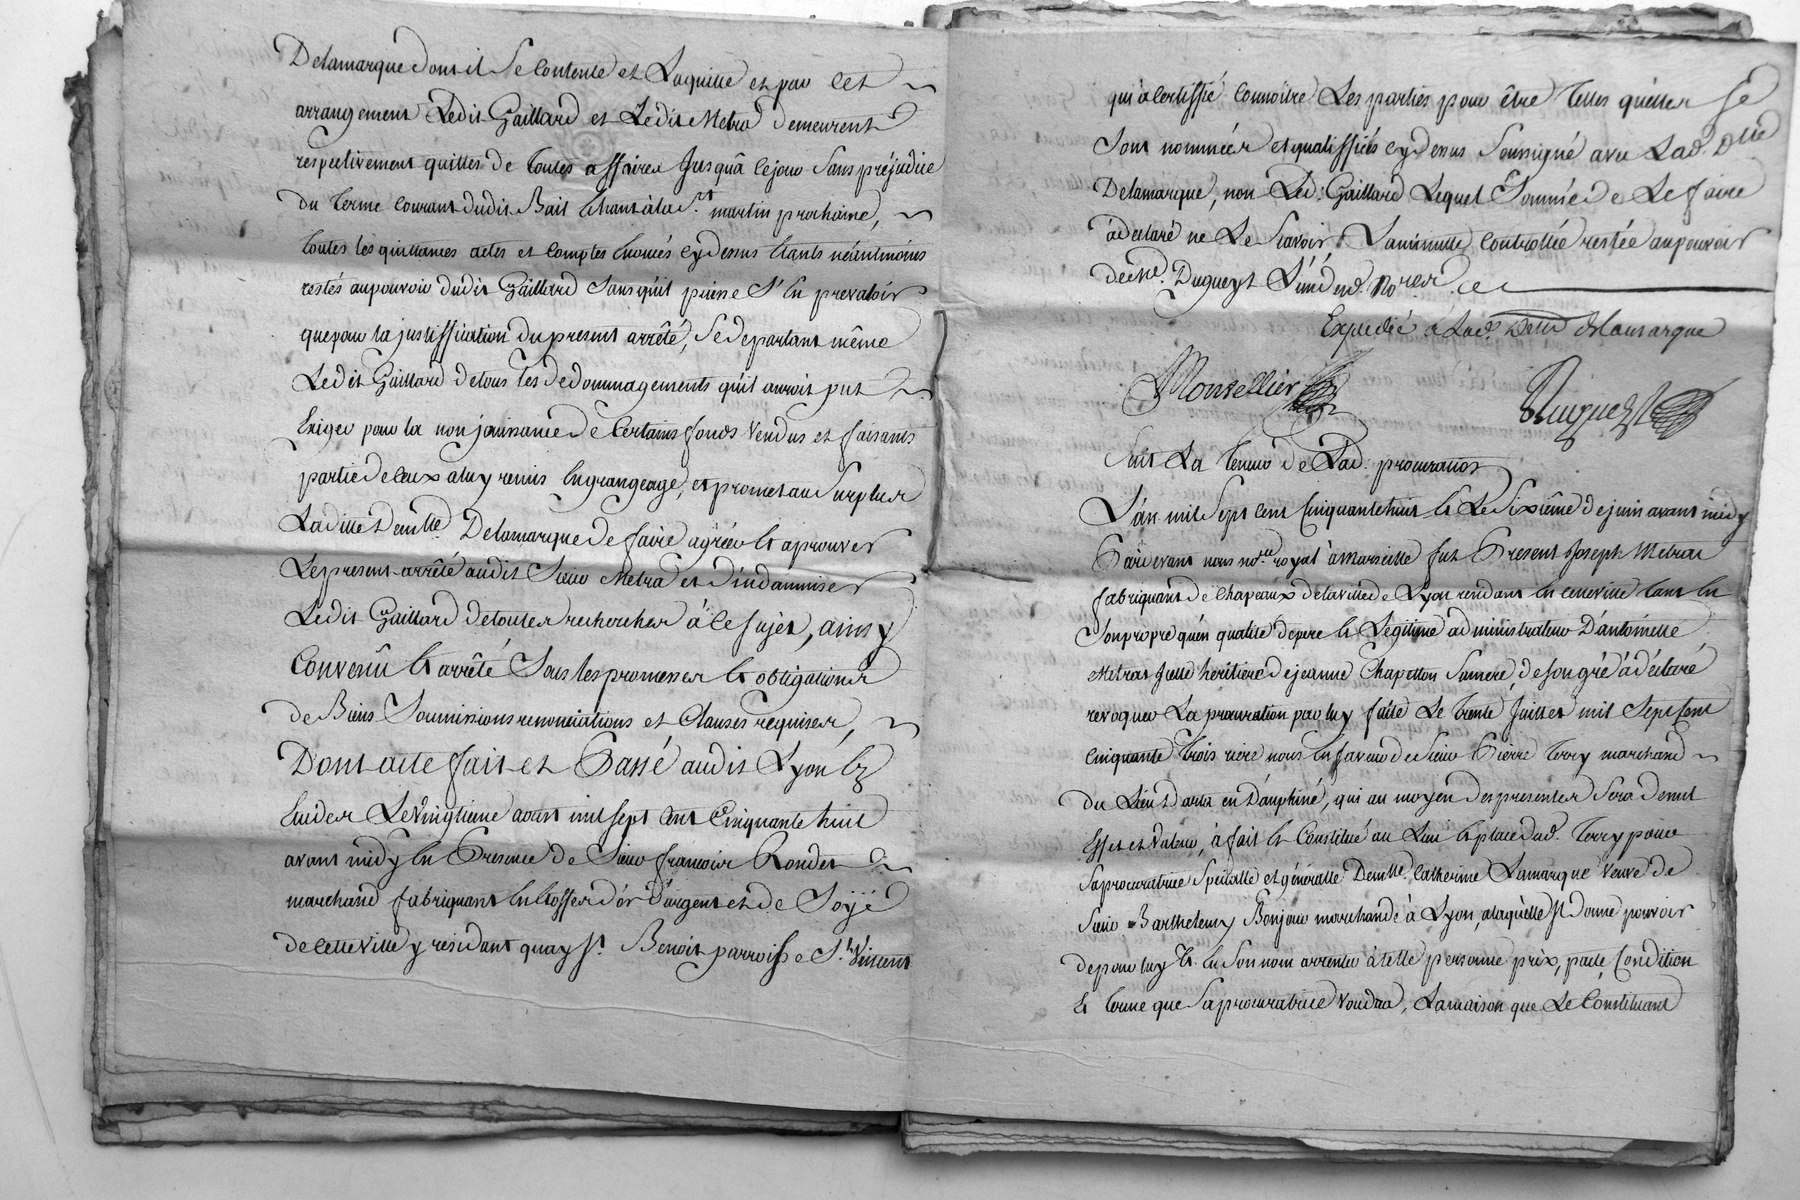 Delamarque dont il se contente et Laquitte et par cet
arrangement Ledit Gaillard et Ledit Metra demeurent
respectivement quittes de toutes affaires Jusquà cejour Sans préjudice
du terme courant dudit Bail Echant à la St. martin prochaine,
toutes les quittances actes et comptes Enoncés cy dessus Etants néantmoins
restés aupouvoir dudit Gaillard Sans quil puisse S'en prevaloir
que pour la justiffication dupresent arrêté, Se departant même
Ledit Gaillard de tous les dedommagements quil auroit put
Exiger pour la non jouissance de Certains fonds Vendus et faisants
partie de Ceux a luy remis Engrangeage, et promet au Surplus
Laditte Demlle. Delamarque de faire agréer Et aprouver
Lepresent arrêté audit Sieur Metra et d'indamniser
Ledit Gaillard de toutes recherches à ce Sujet, ainsy
Convenû Et arrêté Sous les promesses Et obligations
de Biens Soumissions renonciations et Clauses requises,
Dont acte fait et Passé audit Lyon Ez
Etudes Le Vingtieme aoust mil sept Cent Cinquante huit
avant midy En Presence de Sieur francois Rondet
marchand fabriquant En Etoffes d'or d'argent et de Soye
de Cette Ville y résidant quay St. Benoit parroisse St. Vincent
qui à Certiffié Connoitre Les parties pour être telles quelles Se
Sont nommées et qualiffiés cy dessus Soussigné avec Lad. Dlle
Delamarque, non Led. Gaillard Lequel Sommé de Le faire
à declaré ne Le Scavoir Laminutte Controllée restée aupouvoir
de Me. Dugueyt L'un desd. Nores.
Expedié à Lad. Delle delamarque
Montellier Dugueyt
Suit La teneur de Lad. procuration
L'an mil Sept Cent Cinquante huit Et Le Sixième de juin avant midy
Pardevant nous nore. royal à Marseille fut Present Joseph Metras
fabriquant de Chapeaux de la Ville de Lyon rendant En Cette Ville tant En
Son propre qu'en qualité de pere Et Legitime administrateur D'antoinette
Metras Fille héritiere de jeanne Chapetton Samere, de Son gré à déclaré
revoquer La procuration par luy faite Le trente Juillet mil Sept Cent
Cinquante trois riere nous En faveur de Sieur Pierre terry marchand
du Lieu d'arta en Dauphiné, qui au moyen des presentes Sera de nul
Effet et Valeur, à fait Et Constitué au Lieu Et place dud. terry pour
Sa procuratrice Specialle et généralle Demlle. Catherine Lamarque Veuve de
Sieur Barthelemy Bonjour marchande à Lyon, a laquelle Il donne pouvoir
de pour luy Et En Son nom arrenter à telle personne prix, pacte, Condition
Et terme que Sa procuratrice Voudra, Lamaison que Le Constituant